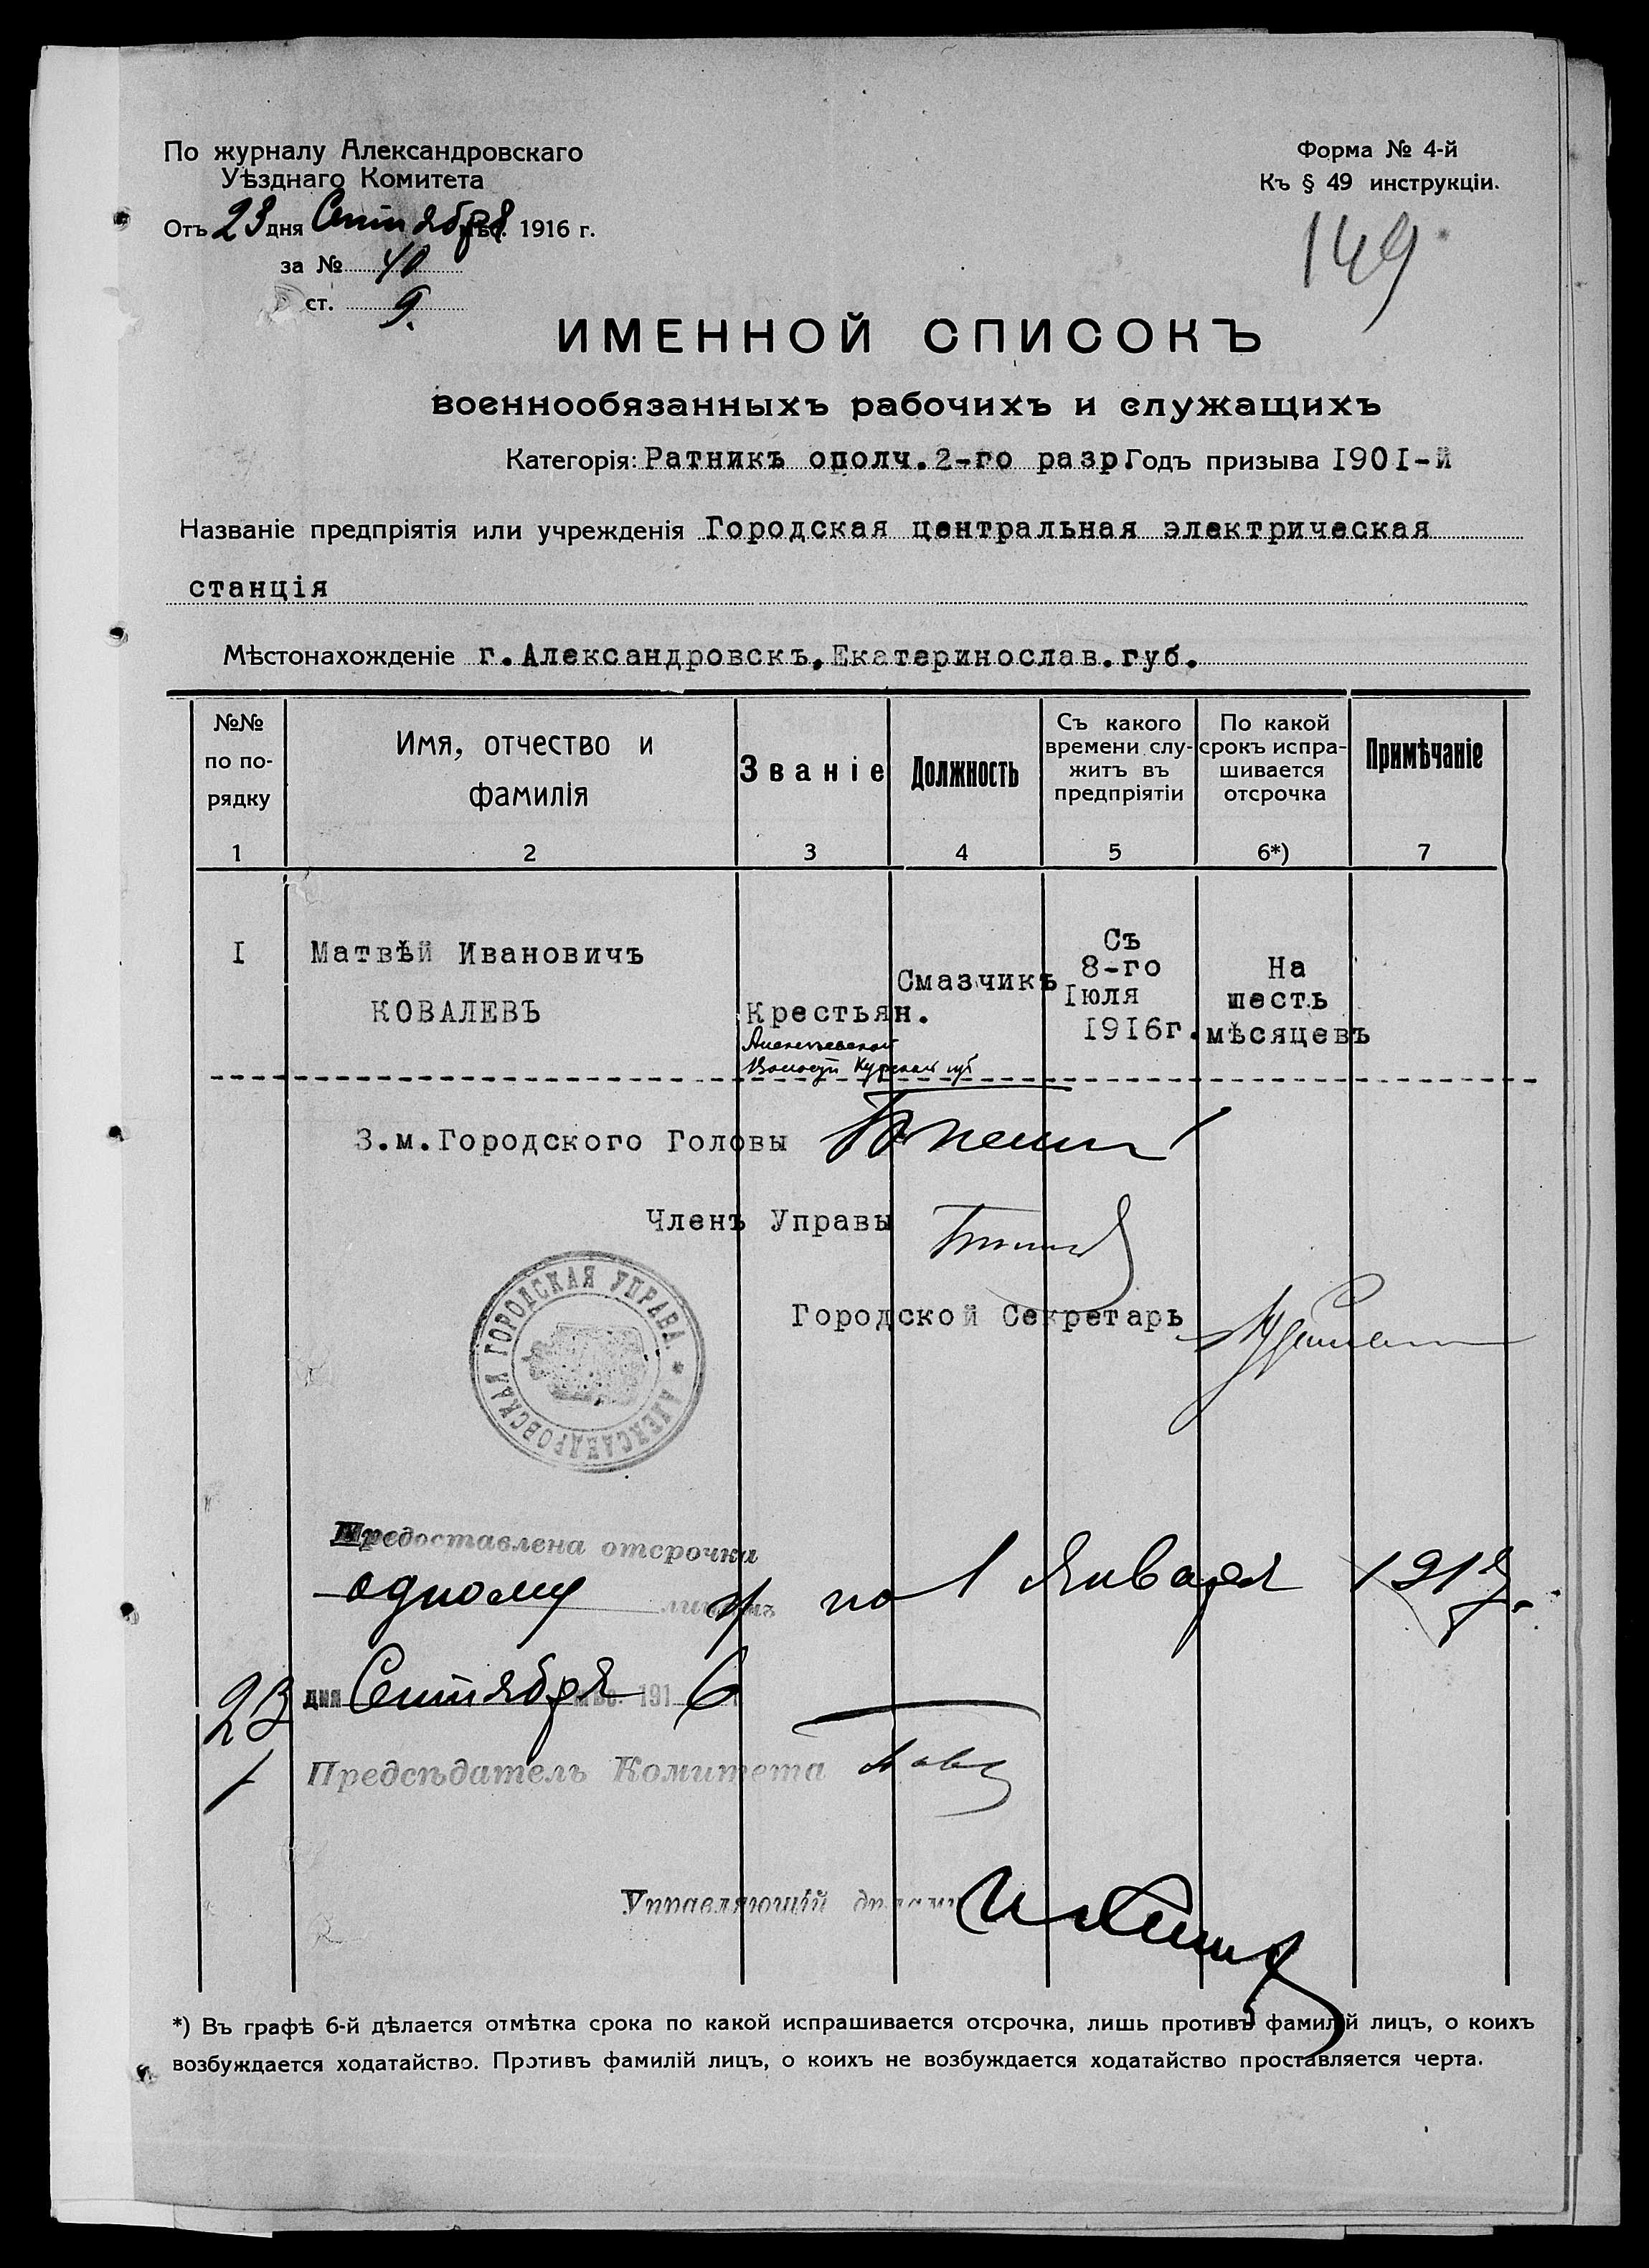 По журналу Александровскаго
Уѣзднаго Комитета
Отъ 23 дня Сентября мѣс. 1916 г.
за № 40
ст. 9.
Форма № 4-й
Къ § 49 инструкціи.
149
ИМЕННОЙ СПИСОКЪ
военнообязанныхъ рабочихъ и служащихъ
Категорія: Ратникъ ополч. 2-го разр. Годъ призыва 1901-й
Названіе предпріятія или учрежденія Городская центральная электрическая
станція
Мѣстонахожденіе г. Александровскъ, Екатеринослав. губ.
№№
по по-
рядку
1
Имя, отчество и
фамилія
2
Званіе
3
Должность
4
Съ какого
времени слу-
житъ въ
предпріятіи
5
По какой
срокъ испра-
шивается
отсрочка
6*)
Примѣчаніе
7
I
Матвѣй Ивановичъ
КОВАЛЕВЪ
Крестьян.
Волости Курской губ
Смазчикъ
Съ
8-го
Іюля
1916г.
На
шесть
мѣсяцевъ
З.м. Городского Головы
Членъ Управы
Городской Секретарь
АЛЕКСАНДРОВСКАЯ ГОРОДСКАЯ УПРАВА
Предоставлена отсрочка
одному по 1 Января 1917г.
23 дня Сентября мѣс. 1916
Предсѣдатель Комитета
Управляющій дѣлами
*) Въ графѣ 6-й дѣлается отмѣтка срока по какой испрашивается отсрочка, лишь противъ фамилій лицъ, о коихъ
возбуждается ходатайство. Противъ фамилій лицъ, о коихъ не возбуждается ходатайство проставляется черта.